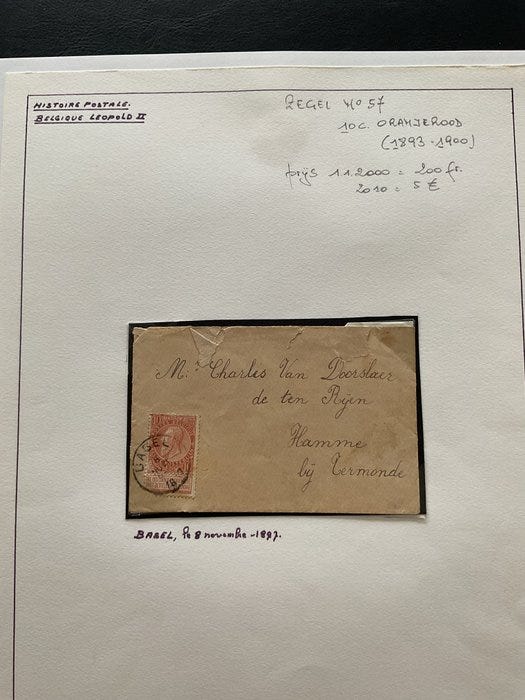 HISTOIRE POSTALE.
BELGIQUE LEOPOLD II
ZEGEL No 57
10c. ORANJEROOD
(1893-1900)
prijs 1.1.2000 = 200 fr.
2010 = 5 €
Mr. Charles Van Doorslaer
de ten Rijen
Hamme
bij Termonde
10
10
GABEL
8
18
BABEL, le 8 novembre-1897.